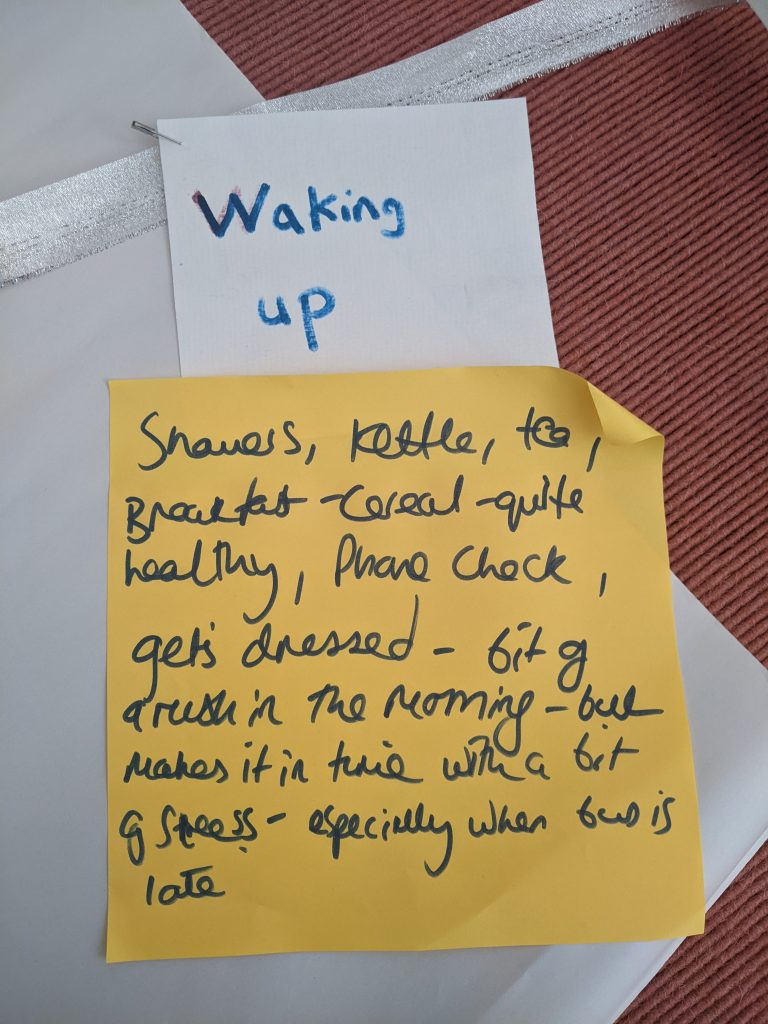 Waking
up
Showers, kettle, tea,
Breakfast - Cereal - quite
healthy, Phone check,
gets dressed - bit of
a rush in the morning - but
makes it in time with a bit
of stress - especially when bus is
late